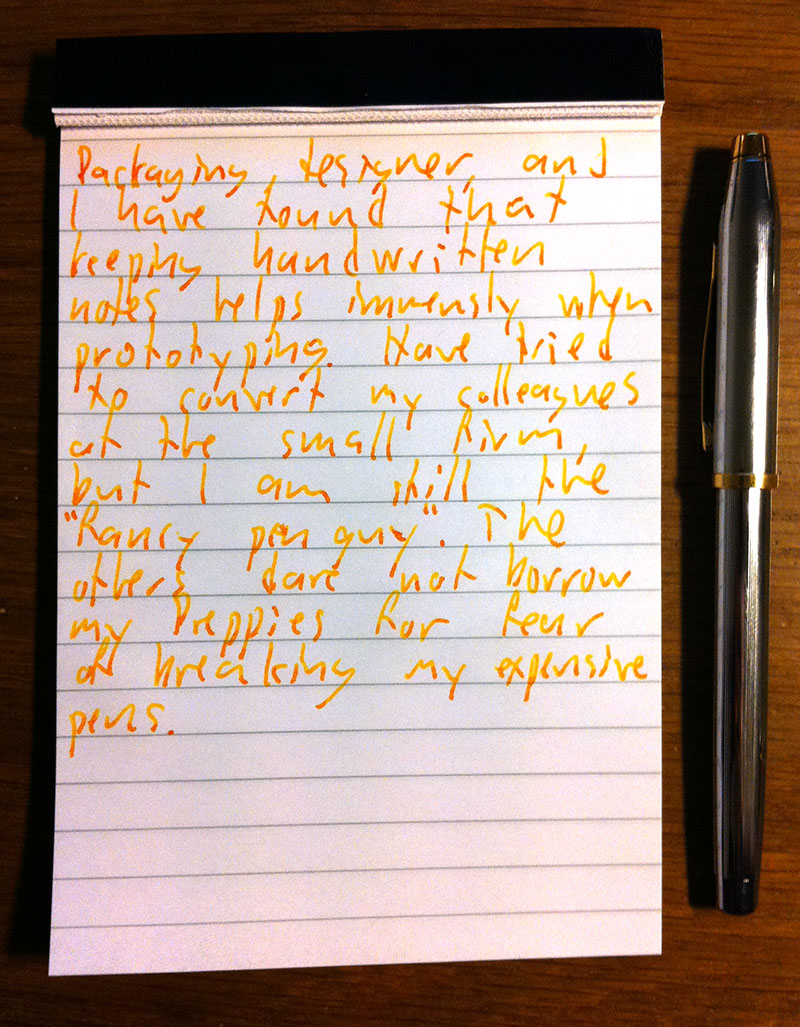 Packaging designer, and
I have found that
keeping handwritten
notes helps immensly when
prototyping. Have tried
to convert my colleagues
at the small firm,
but I am still the
"fancy pen guy". The
others dare not borrow
my Preppies for fear
of breaking my expensive
pens.